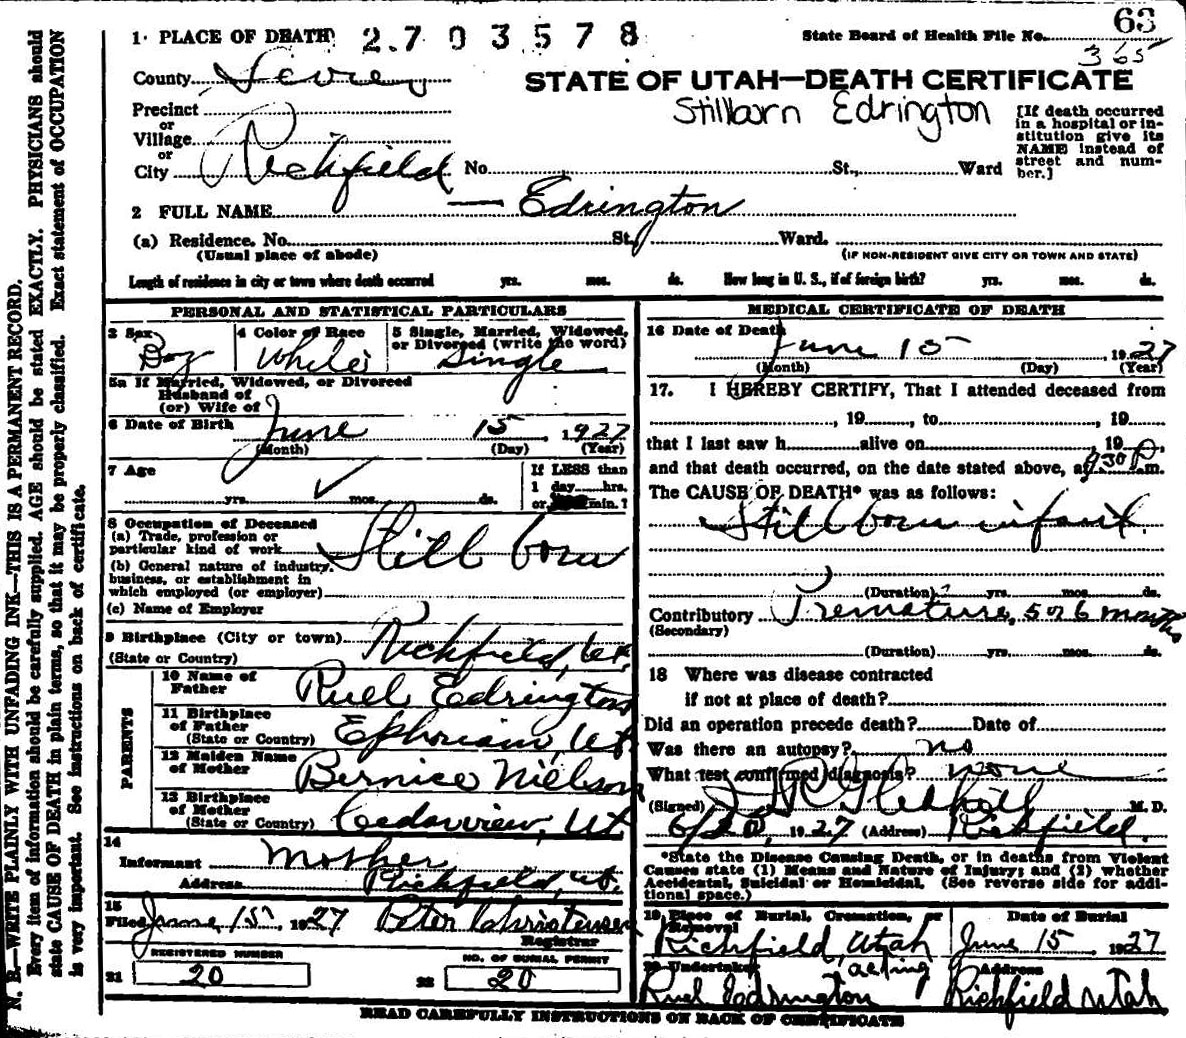 63
State Board of Health File No. 365
1 PLACE OF DEATH 2703578
STATE OF UTAH—DEATH CERTIFICATE
County Sevier
Stillborn Edrington
Precinct
or
Village
or
City Richfield No. St., Ward
[If death occurred in a hospital or institution give its NAME instead of street and number.]
2 FULL NAME — Edrington
(a) Residence. No. St., Ward.
(Usual place of abode) (IF NON-RESIDENT GIVE CITY OR TOWN AND STATE)
Length of residence in city or town where death occurred yrs. mos. ds. How long in U. S., if of foreign birth? yrs. mos. ds.
PERSONAL AND STATISTICAL PARTICULARS
3 Sex Boy
4 Color or Race White
5 Single, Married, Widowed, or Divorced (write the word) Single
5a If Married, Widowed, or Divorced
Husband of
(or) Wife of
6 Date of Birth June 15, 1927
(Month) (Day) (Year)
7 Age yrs. mos. ds.
If LESS than
1 day hrs.
or min.?
8 Occupation of Deceased
(a) Trade, profession or particular kind of work Still born
(b) General nature of industry, business, or establishment in which employed (or employer)
(c) Name of Employer
9 Birthplace (City or town) Richfield, Ut.
(State or Country)
PARENTS
10 Name of Father Ruel Edrington
11 Birthplace of Father Ephriam, Ut.
(State or Country)
12 Maiden Name of Mother Bernice Nielson
13 Birthplace of Mother Cedarview, Ut
(State or Country)
14
Informant Mother
Address Richfield, Ut.
15
Filed June 15, 1927 Peter Christensen
Registrar
REGISTERED NUMBER
21 20
NO. OF BURIAL PERMIT
22 20
MEDICAL CERTIFICATE OF DEATH
16 Date of Death
June 15, 1927
(Month) (Day) (Year)
17. I HEREBY CERTIFY, That I attended deceased from
, 19 , to , 19
that I last saw h alive on , 19
and that death occurred, on the date stated above, at 930 P.m.
The CAUSE OF DEATH* was as follows:
Still born infant
(Duration) yrs. mos. ds.
Contributory Premature, 5 or 6 months
(Secondary)
(Duration) yrs. mos. ds.
18 Where was disease contracted
if not at place of death?
Did an operation precede death? Date of
Was there an autopsy? no
What test confirmed diagnosis? none
(Signed) M. D.
6/20, 1927 (Address) Richfield.
*State the Disease Causing Death, or in deaths from Violent Causes state (1) Means and Nature of Injury; and (2) whether Accidental, Suicidal or Homicidal. (See reverse side for additional space.)
19 Place of Burial, Cremation, or Removal
Richfield, Utah
Date of Burial
June 15 1927
20 Undertaker acting
Ruel Edrington
Address
Richfield Utah
READ CAREFULLY INSTRUCTIONS ON BACK OF CERTIFICATE
N. B.—WRITE PLAINLY WITH UNFADING INK—THIS IS A PERMANENT RECORD.
Every item of information should be carefully supplied. AGE should be stated EXACTLY. PHYSICIANS should
state CAUSE OF DEATH in plain terms, so that it may be properly classified. Exact statement of OCCUPATION
is very important. See instructions on back of certificate.